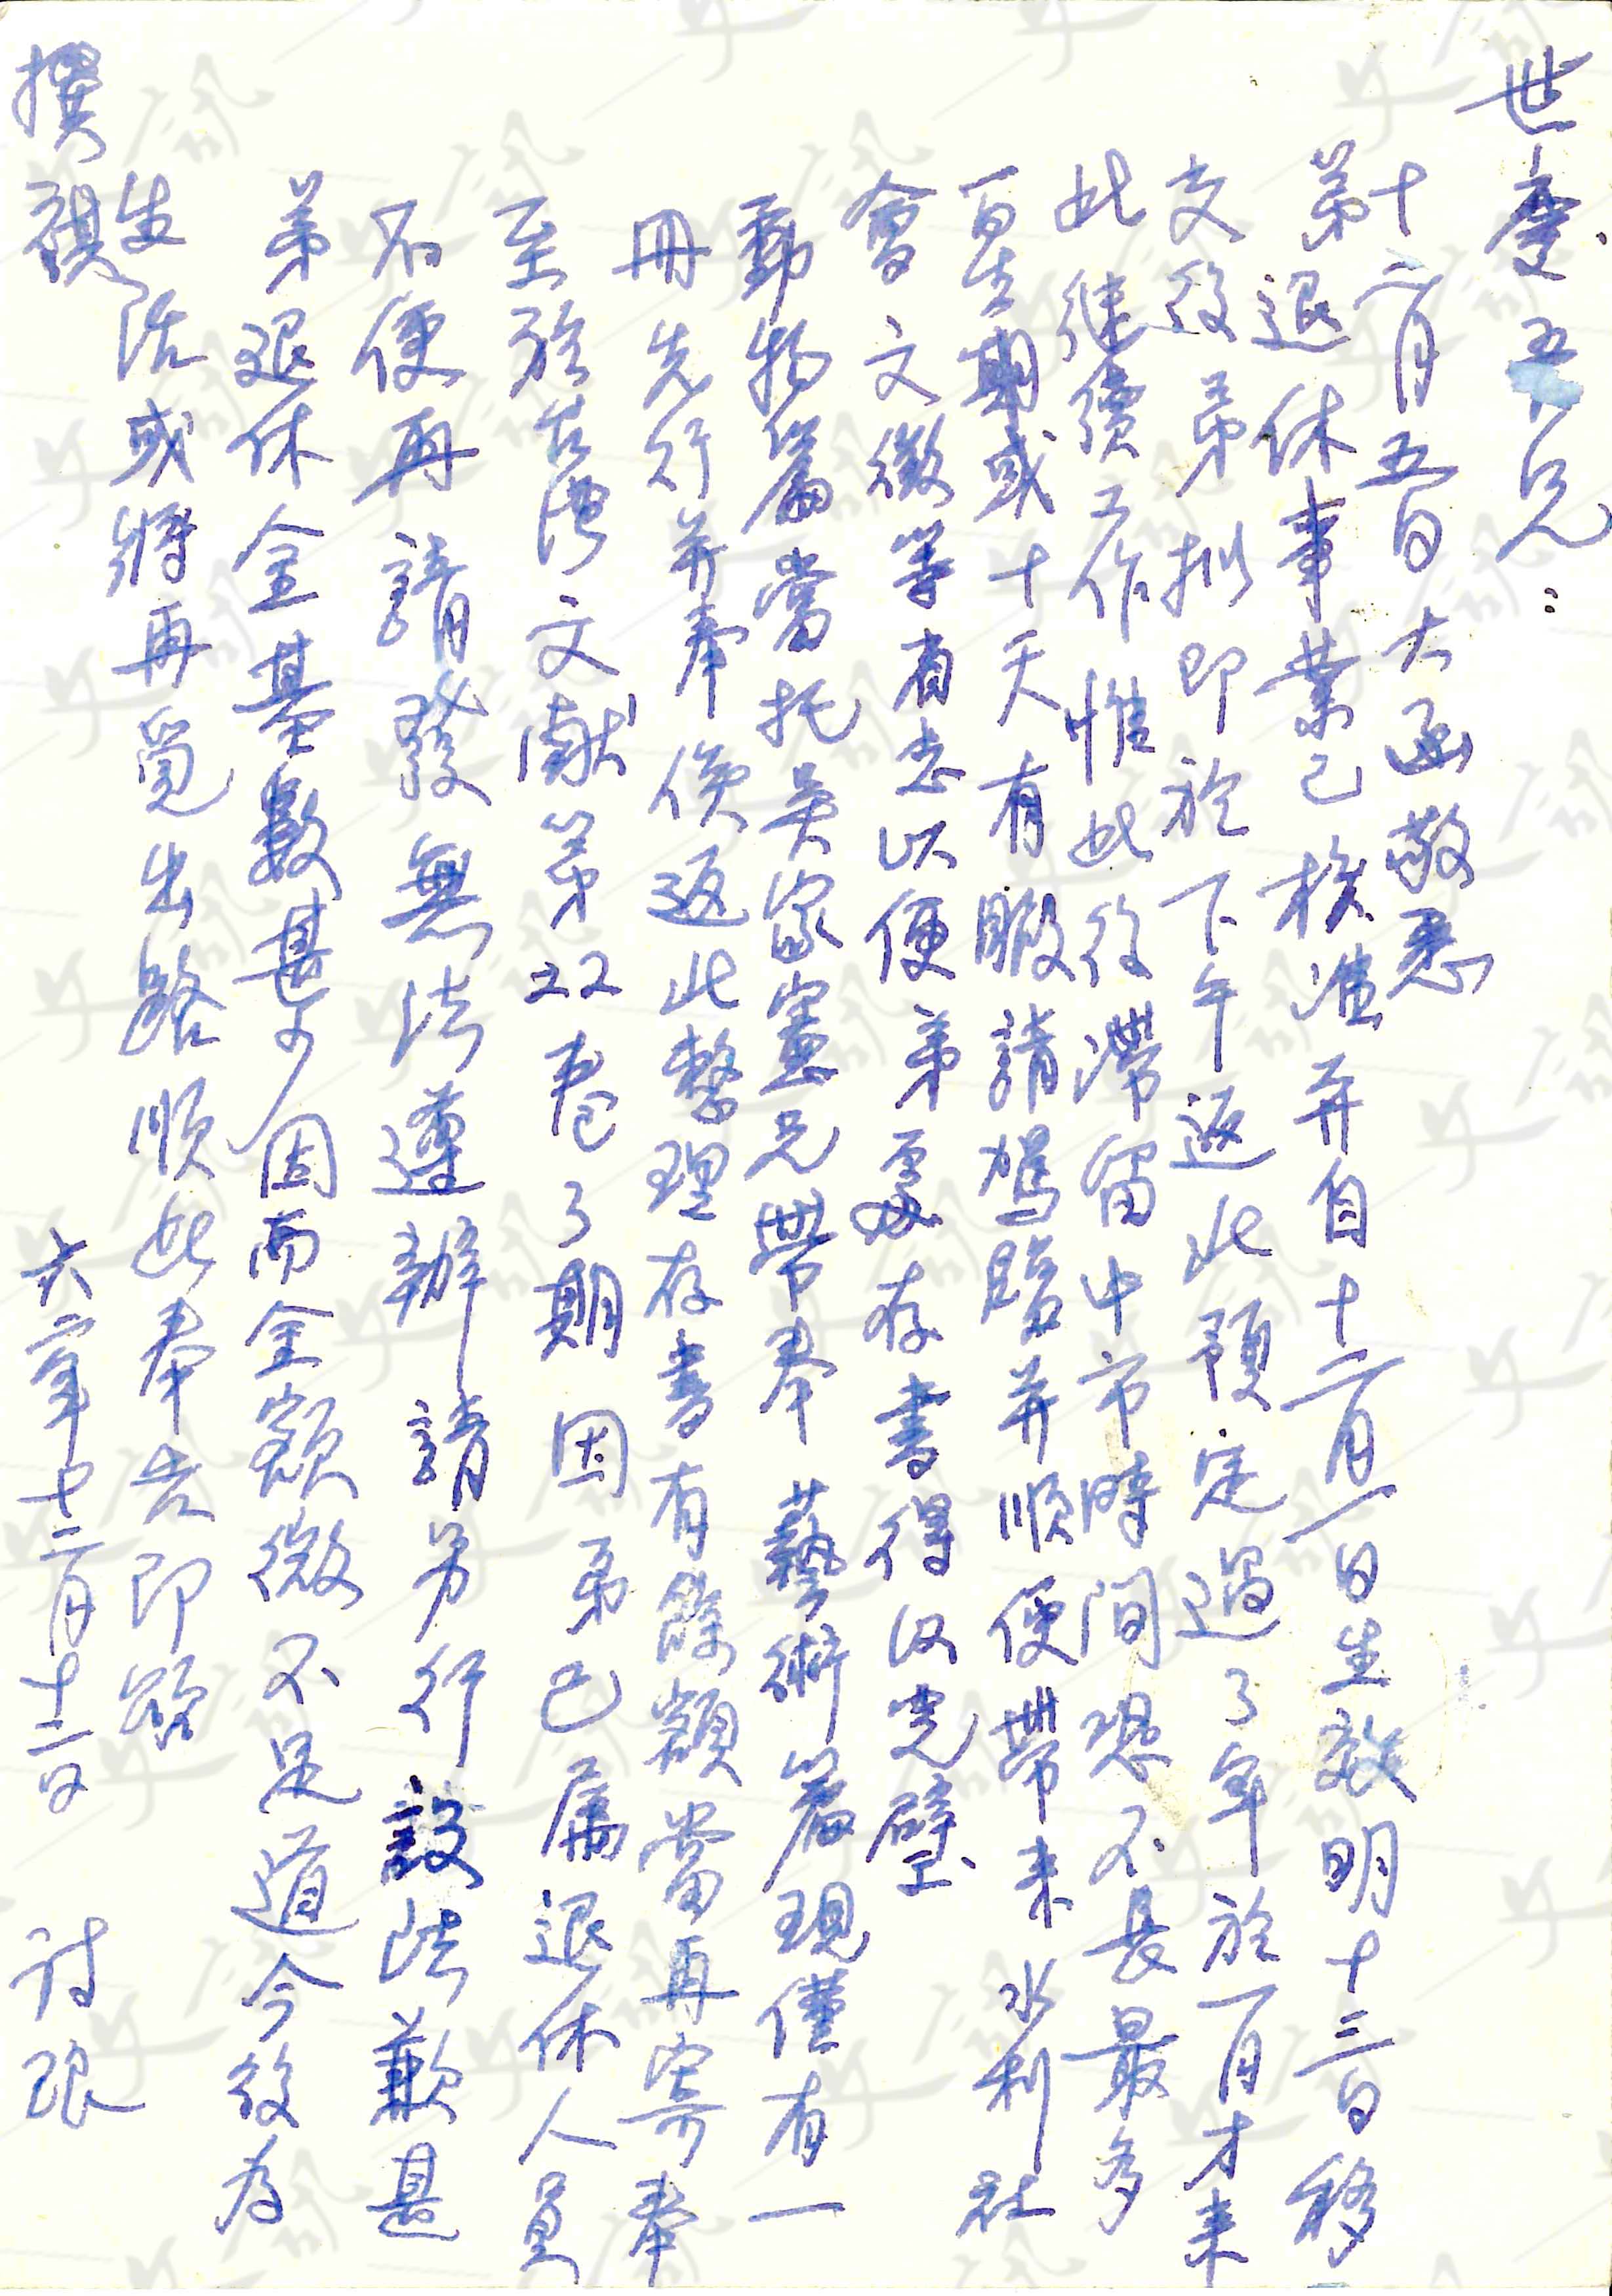 世慶吾兄：
十二月五日大函敬悉
弟退休事業已核准并自十二月一日生效明十三日移
交後弟拟即於下午返北預定過了年於一月才来
此继續工作惟此後滯留中市時間恐不長最多
一百星期或十天有暇請駕臨并順便帶来水利社
會文徵等有志以便弟處存書得以完璧
動物篇當托吳家憲兄帶奉藝術篇現僅有一
冊先行并奉俟返北整理存書有餘額當再寄奉
至於台湾文献第22卷3期因弟已屬退休人員
不便再請發無法遵辦請另行設法歉甚
弟退休金基數甚少因而金額微不足道今後為
生活或將再覓出路順此奉告即頌
撰祺
六二年十二月十二日